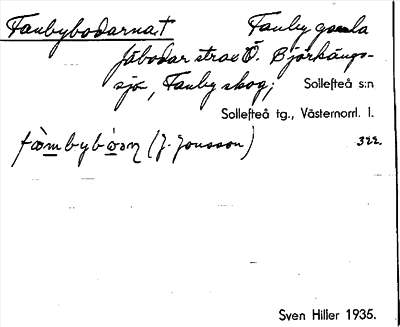 Fanbybodarna † Fanby gamla
fäbodar strax Ö. Björkängs-
sjö, Fanby skog; Sollefteå s:n
Sollefteå tg., Västernorrl. l.
(J. Jonsson) 322.
Sven Hiller 1935.